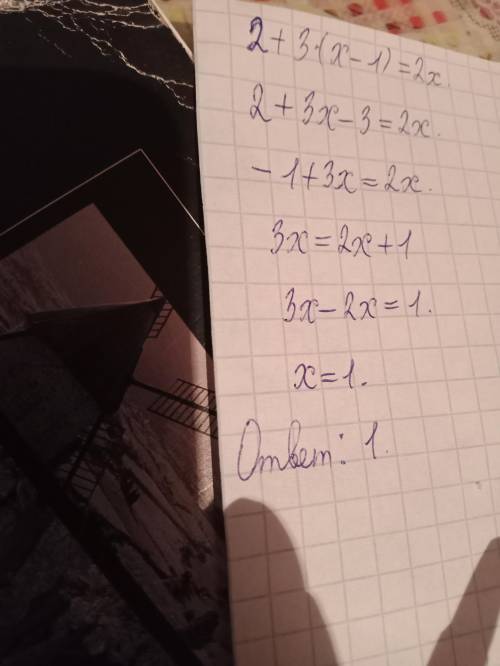 2 + 3·(x - 1) = 2x.
2 + 3x - 3 = 2x.
- 1 + 3x = 2x.
3x = 2x + 1
3x - 2x = 1.
x = 1.
Ответ: 1.